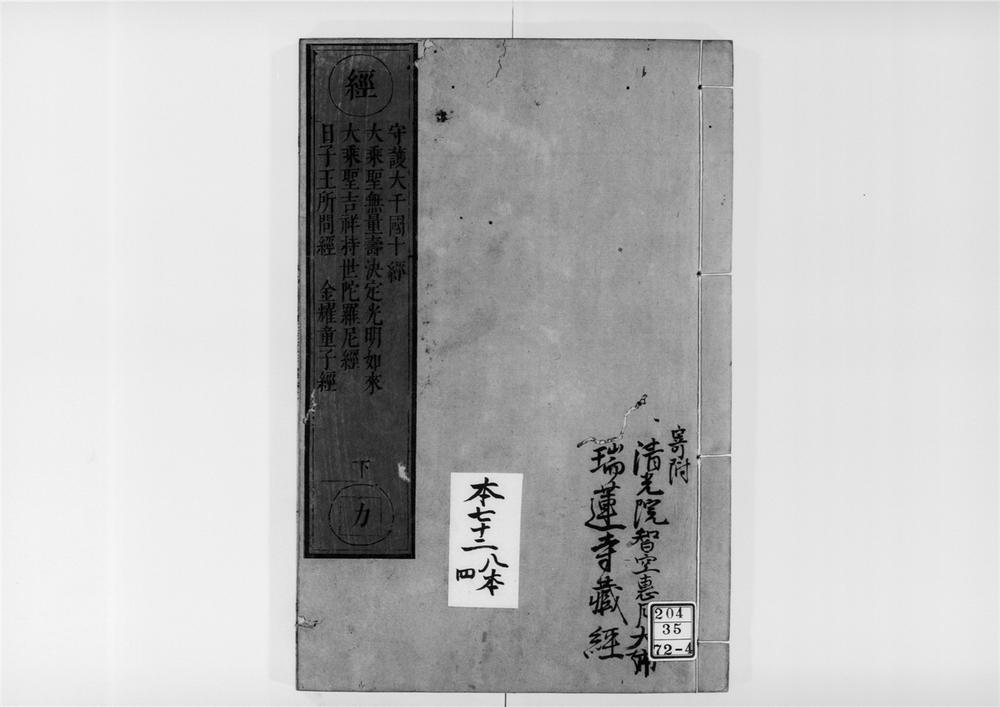 經
守護大千國土經
大乘聖無量壽決定光明如來
大乘聖吉祥持世陀羅尼經
日子王所問經　金耀童子經
下
力
寄附
清光院智空惠月大姉
瑞蓮寺藏經
本七十二
八本
四
204
35
72-4